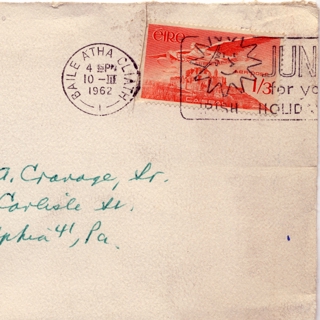 BAILE ÁTHA CLIATH
4 PM
10 - III
1962
1
éire
1/3
JUN
for yo
IRISH HOLID
A. Cravage, Sr.
Carlisle St.
lphia 41, Pa.